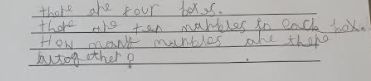 there are four boxs.
there are ten marbles in each box.
How many marbles are there
altogether?